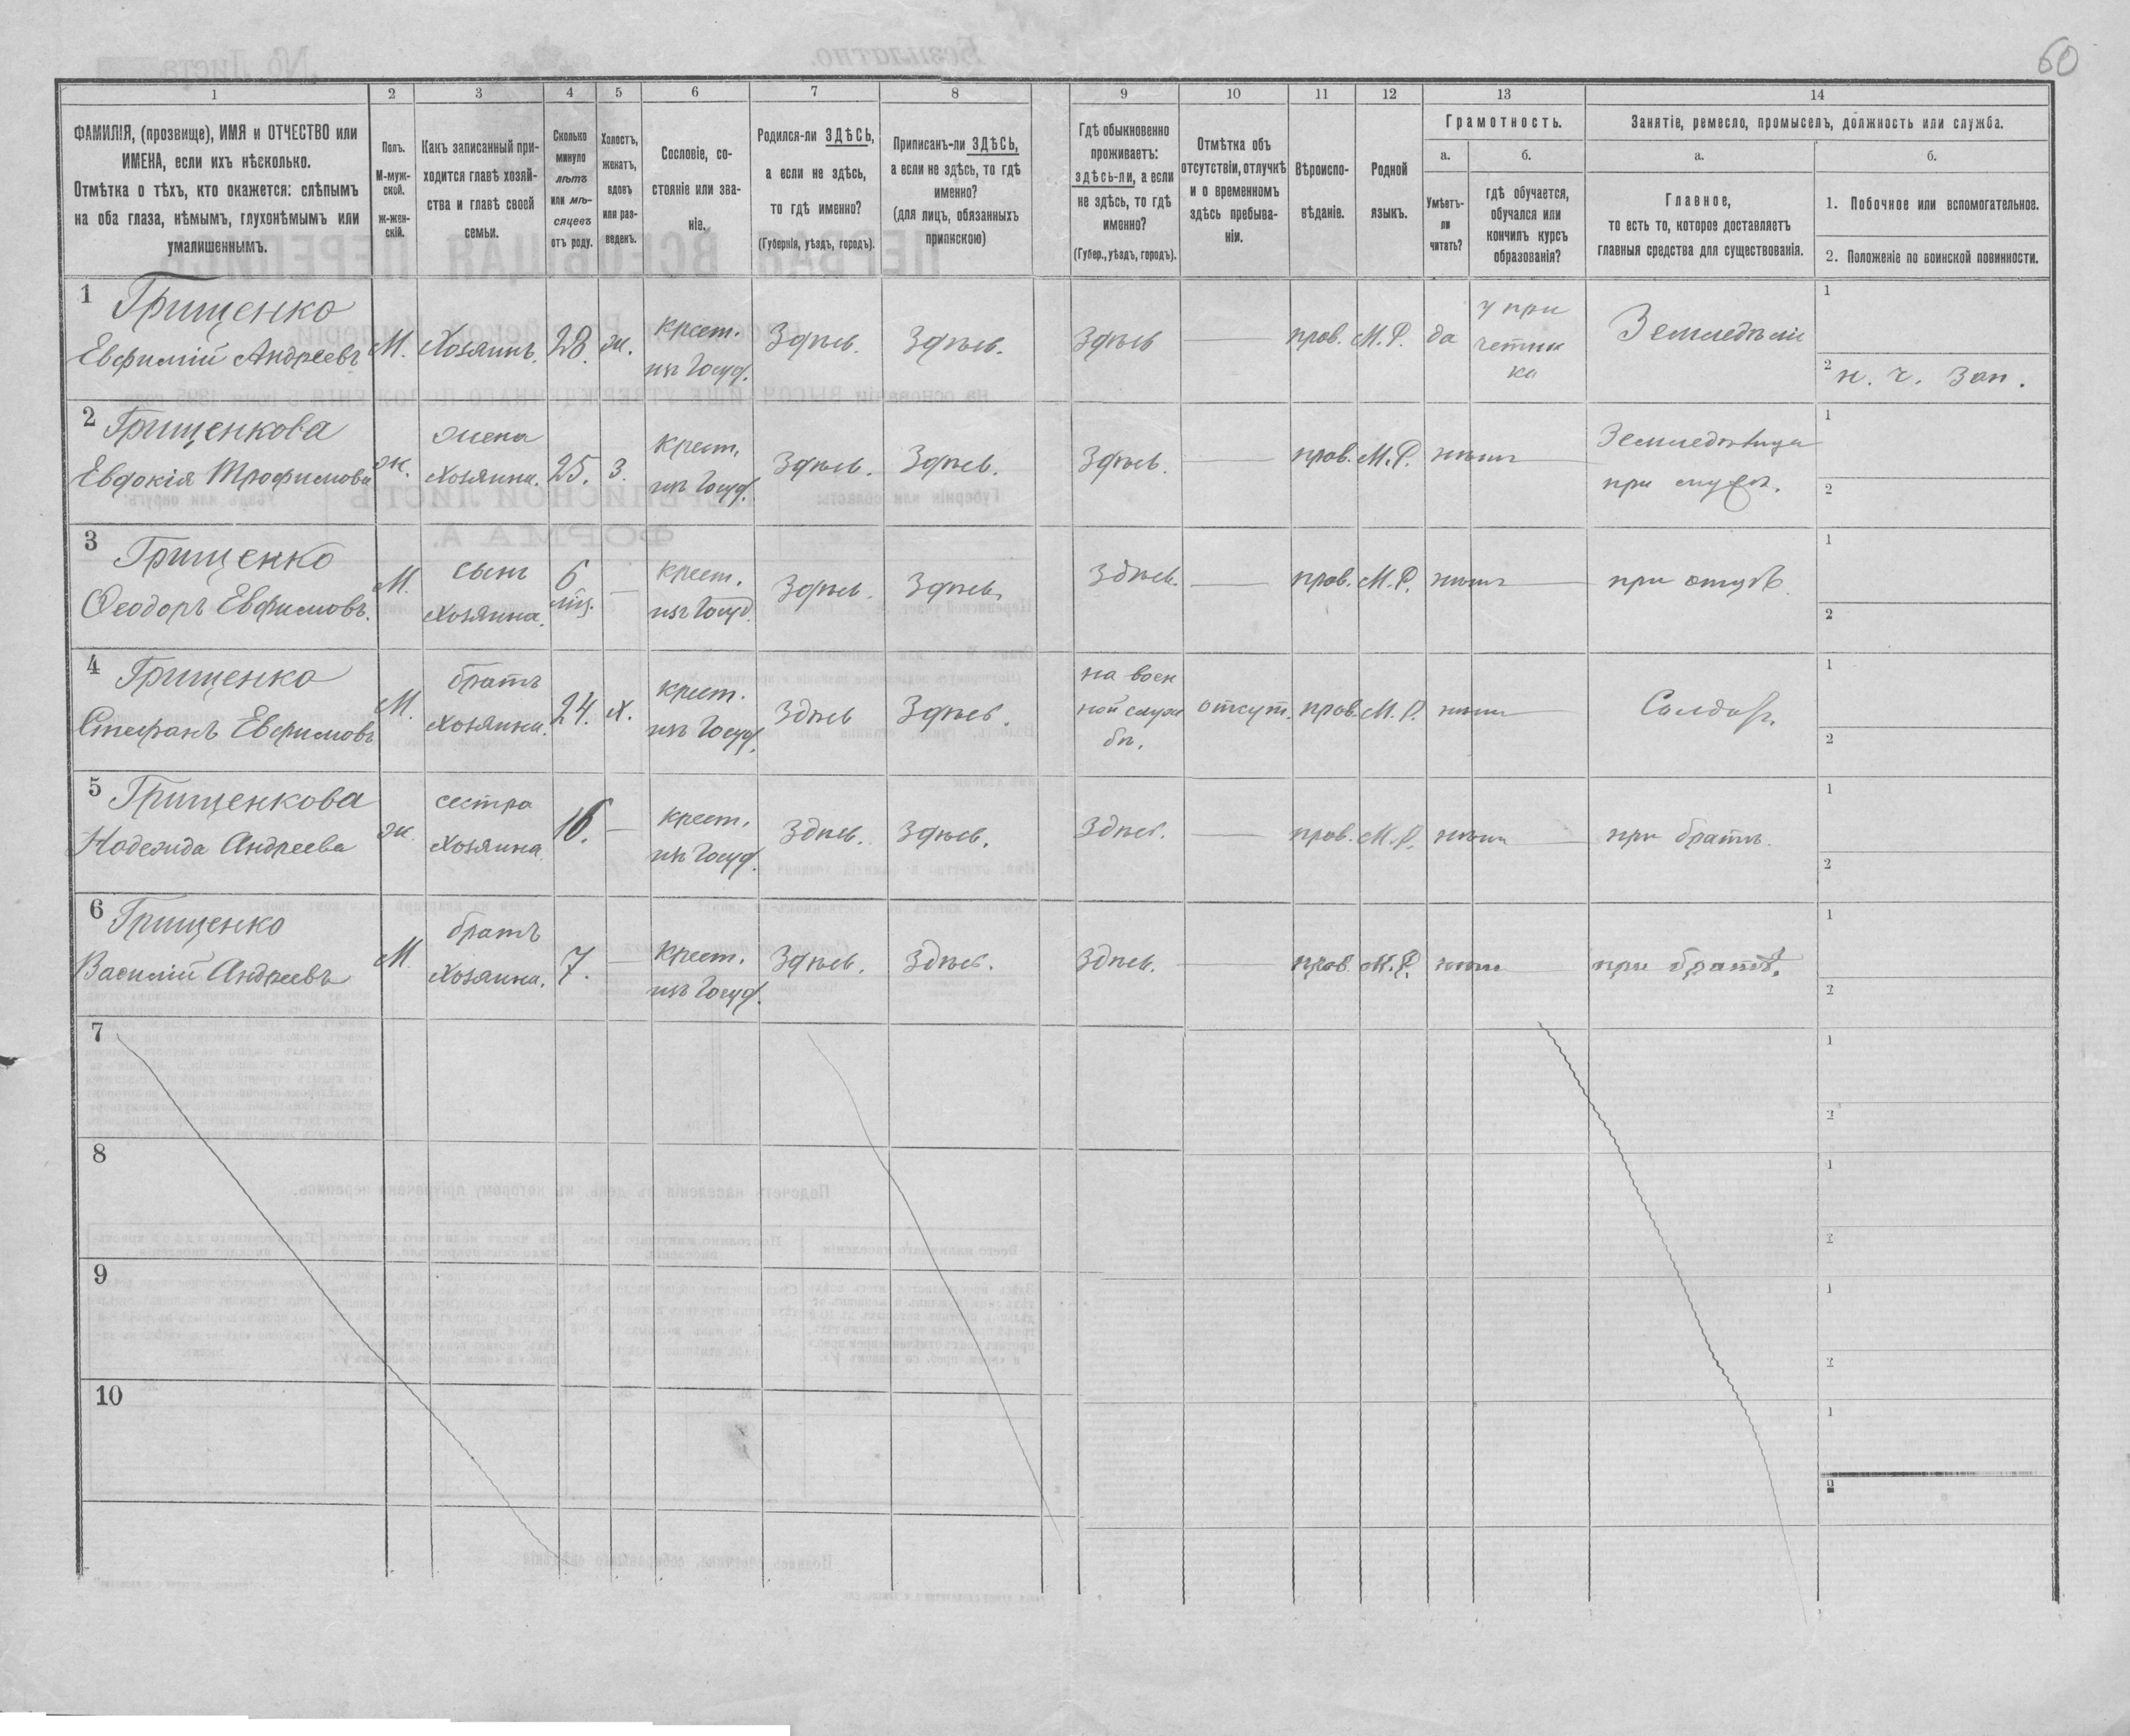 60
1 2 3 4 5 6 7 8 9 10 11 12 13 14
ФАМИЛІЯ, (прозвище), ИМЯ и ОТЧЕСТВО или
ИМЕНА, если ихъ нѣсколько.
Отмѣтка о тѣхъ, кто окажется: слѣпымъ
на оба глаза, нѣмымъ, глухонѣмымъ или
умалишеннымъ.
Полъ.
М-муж-
ской.
ж-жен-
скій.
Какъ записанный при-
ходится главѣ хозяй-
ства и главѣ своей
семьи.
Сколько
минуло
лѣтъ
или мѣ-
сяцевъ
отъ роду.
Холостъ,
женатъ,
вдовъ
или раз-
веденъ.
Сословіе, со-
стояніе или зва-
ніе.
Родился-ли ЗДѢСЬ,
а если не здѣсь,
то гдѣ именно?
(Губернія, уѣздъ, городъ).
Приписанъ-ли ЗДѢСЬ,
а если не здѣсь, то гдѣ
именно?
(для лицъ, обязанныхъ
припискою)
Гдѣ обыкновенно
проживаетъ:
здѣсь-ли, а если
не здѣсь, то гдѣ
именно?
(Губер., уѣздъ, городъ).
Отмѣтка объ
отсутствіи, отлучкѣ
и о временномъ
здѣсь пребыва-
ніи.
Вѣроиспо-
вѣданіе.
Родной
языкъ.
Грамотность.
а.
Умѣетъ-
ли
читать?
б.
гдѣ обучается,
обучался или
кончилъ курсъ
образованія?
Занятіе, ремесло, промыселъ, должность или служба.
а.
Главное,
то есть то, которое доставляетъ
главныя средства для существованія.
б.
1. Побочное или вспомогательное.
2. Положеніе по воинской повинности.
1 Грищенко
Евфимій Андреевъ
М.
Хозяинъ.
28.
ж.
крест.
изъ Госуд.
Здѣсь.
Здѣсь.
Здѣсь
—
прав.
М.Р.
да
у при
четни
ка
Земледѣліе
1
2 н. ч. зап.
2 Грищенкова
Евдокія Трофимова
ж.
жена
хозяина.
25.
З.
крест.
изъ Госуд.
Здѣсь.
Здѣсь.
Здѣсь.
—
прав.
М.Р.
нѣтъ
—
при мужѣ.
1
2
3 Грищенко
Ѳеодоръ Евфимовъ.
М.
сынъ
хозяина.
6
міц.
—
крест.
изъ Госуд.
Здѣсь.
Здѣсь.
Здѣсь.
—
прав.
М.Р.
нѣтъ
—
при отцѣ.
1
2
4 Грищенко
Стефанъ Евфимовъ
М.
братъ
хозяина.
24.
х.
крест.
изъ Госуд.
Здѣсь
Здѣсь.
на воен
ной служ
бѣ.
отсут.
прав.
М.Р.
нѣтъ
—
Солдатъ.
1
2
5 Грищенкова
Надежда Андреева
ж.
сестра
хозяина.
16.
—
крест.
изъ Госуд.
Здѣсь.
Здѣсь.
Здѣсь.
—
прав.
М.Р.
нѣтъ
—
при братѣ.
1
2
6 Грищенко
Василій Андреевъ
М.
братъ
хозяина.
7.
—
крест.
изъ Госуд.
Здѣсь.
Здѣсь.
Здѣсь.
—
прав.
М.Р.
нѣтъ
—
при братѣ.
1
2
7
1
2
8
1
2
9
1
2
10
1
2